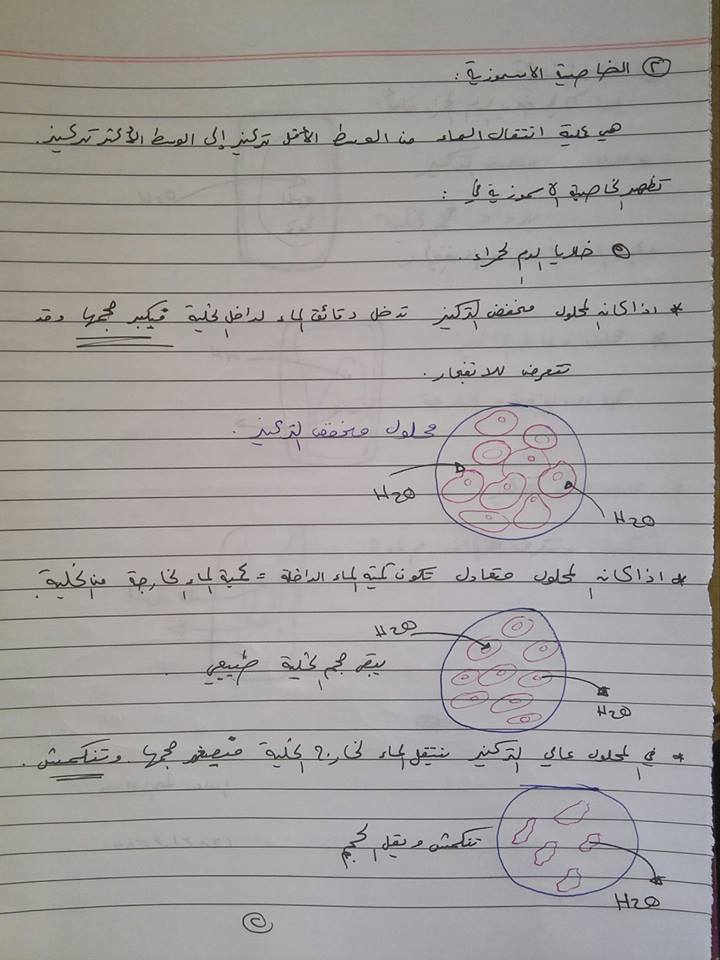 ٢ الخاصية الاسموزية :
هي عملية انتقال الماء من الوسط الأقل تركيز إلى الوسط الأكثر تركيز .
تظهر الخاصية الاسموزية في :
خلايا الدم الحمراء .
* اذا كان المحلول منخفض التركيز تدخل دقائق الماء لداخل الخلية فيكبر حجمها وقد
تتعرض للانفجار .
محلول منخفض التركيز .
H2O
H2O
* اذا كان المحلول متعادل تكون كمية الماء الداخلة = كمية الماء الخارجة من الخلية .
H2O
يبقى حجم الخلية طبيعي .
H2O
* في المحلول عالي التركيز ينتقل الماء لخارج الخلية فيصغر حجمها وتنكمش .
تنكمش ويقل الحجم
H2O
٢